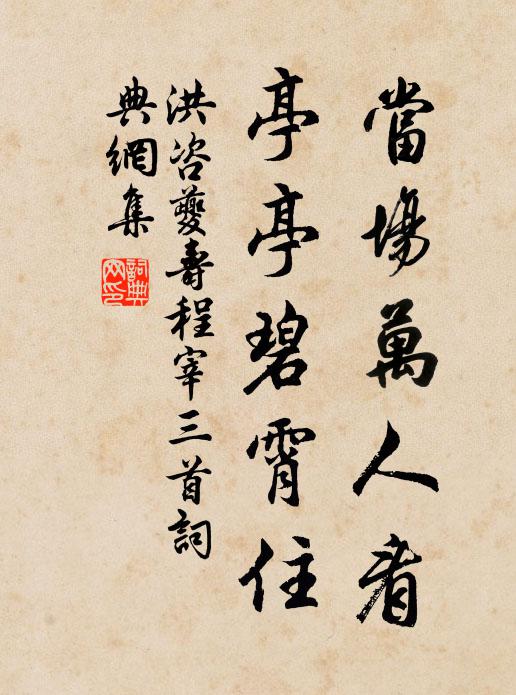 當場萬人看
亭亭碧霄住
洪咨夔壽程宰三首詞
典網集
詞典
网印